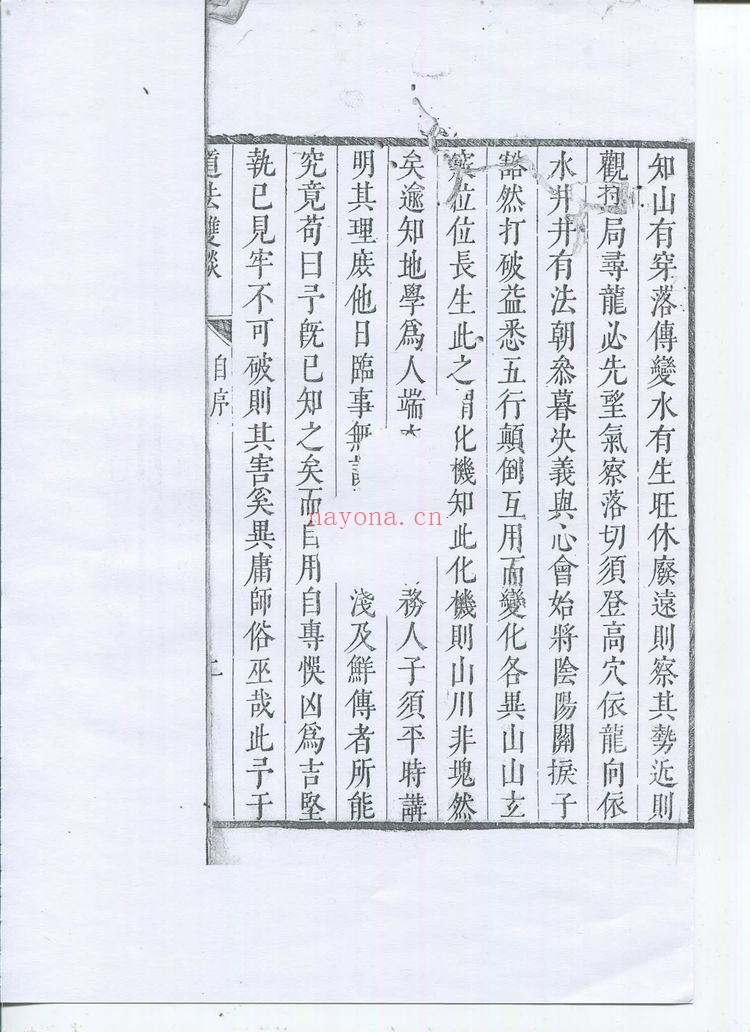 知山有穿落傳變水有生旺休廢遠則察其勢近則
觀局尋龍必先望氣察落切須登高穴依龍向依
水井井有法朝叅暮决義與心會始將陰陽關捩子
豁然打破益悉五行顛倒互用而變化各異山山玄
位位長生此之謂化機知此化機則山川非塊然
矣逾知地學爲人端務人子須平時講
明其理庶他日臨事無淺及鮮傳者所能
究竟苟曰予旣已知之矣而自用自專悞凶爲吉堅
執已見牢不可破則其害奚異庸師俗巫哉此予于
道法雙談
自序
nayona.cn